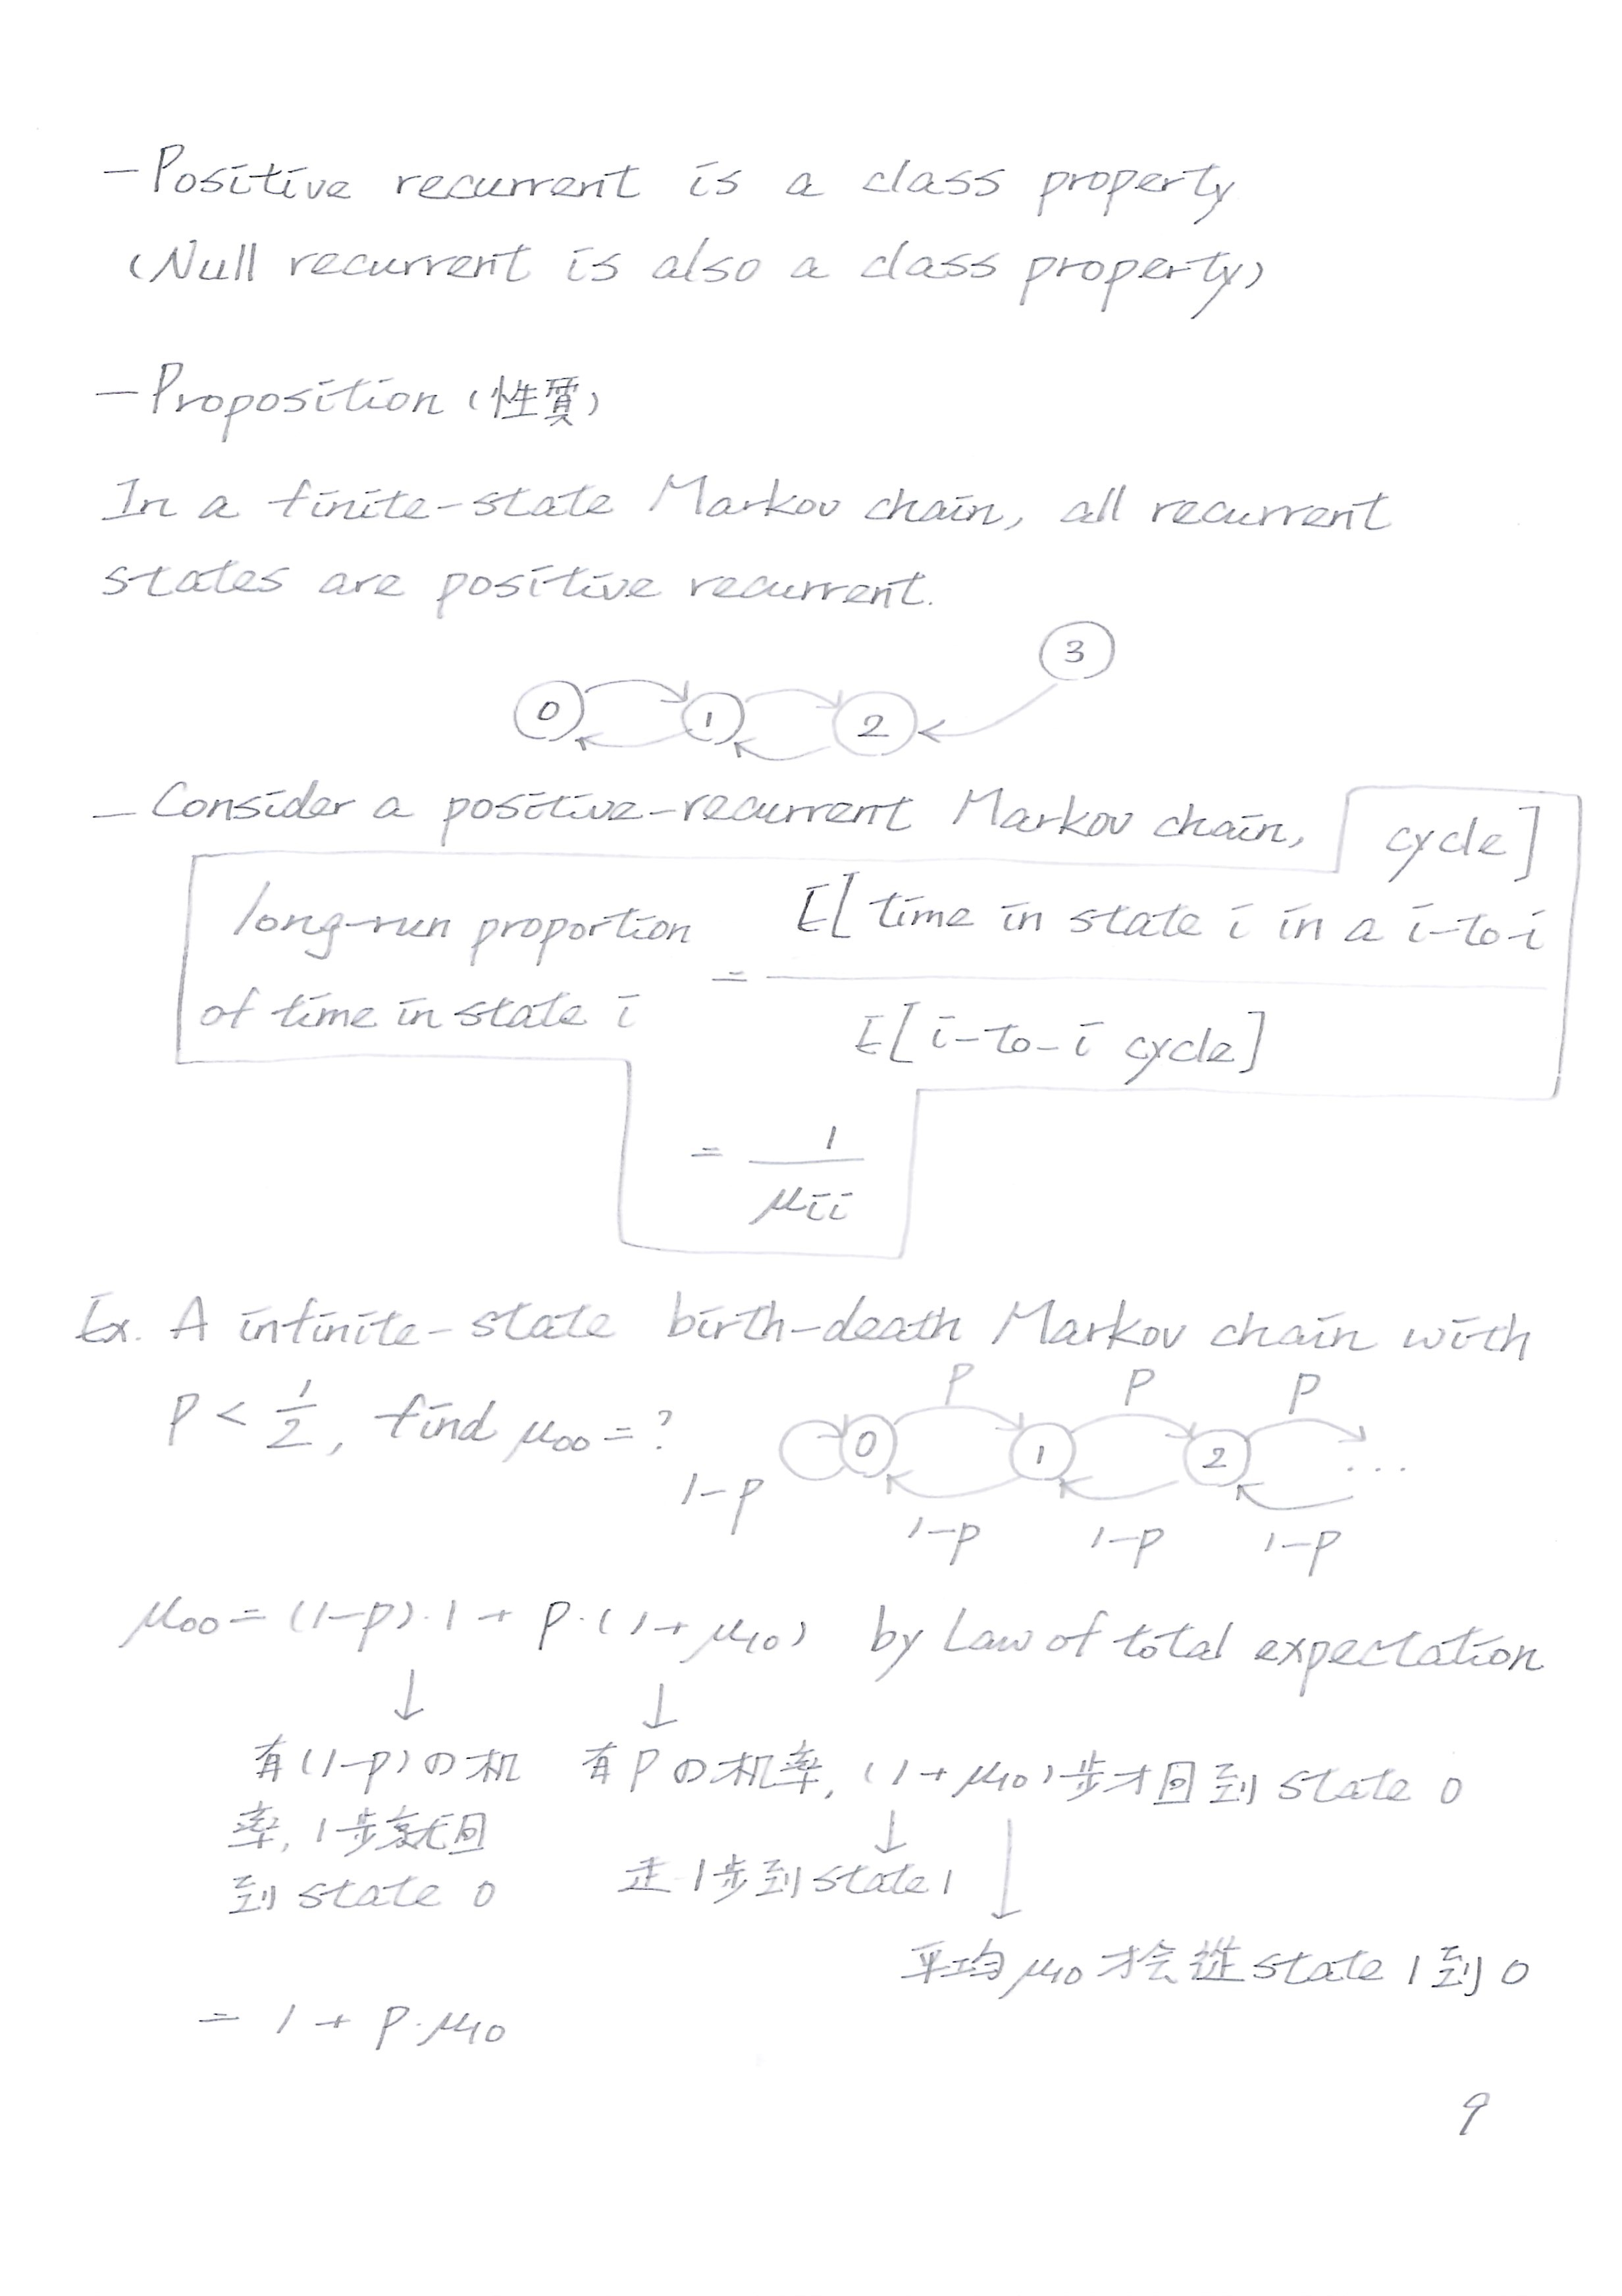 -Positive recurrent is a class property
(Null recurrent is also a class property)
-Proposition (性質)
In a finite-state Markov chain, all recurrent
states are positive recurrent.
3
0 1 2
-Consider a positive-recurrent Markov chain,
long-run proportion of time in state i = E[time in state i in a i-to-i cycle] / E[i-to-i cycle]
= 1/μii
Ex. A infinite-state birth-death Markov chain with
P < 1/2, find μ00 = ?
P P P
0 1 2 ...
1-p 1-p 1-p 1-p
μ00 = (1-p)·1 + p·(1+μ10) by Law of total expectation
↓ ↓
有(1-p)の机率, 1步就回到 state 0
有Pの机率, (1+μ10)步才回到 state 0
↓ ↓
走1步到state 1
平均μ10才会從state 1到0
= 1 + p·μ10
9